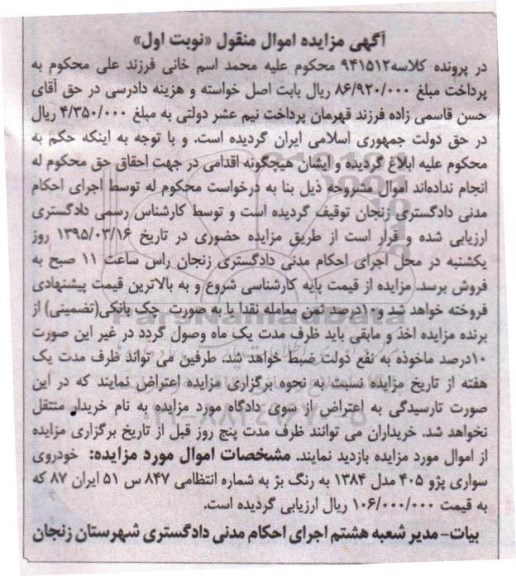 آگهی مزایده اموال منقول «نوبت اول»
در پرونده کلاسه۹۴۱۵۱۲ محکوم علیه محمد اسم خانی فرزند علی محکوم به
پرداخت مبلغ ۸۶/۹۲۰/۰۰۰ ریال بابت اصل خواسته و هزینه دادرسی در حق آقای
حسن قاسمی زاده فرزند قهرمان پرداخت نیم عشر دولتی به مبلغ ۴/۳۵۰/۰۰۰ ریال
در حق دولت جمهوری اسلامی ایران گردیده است. و با توجه به اینکه حکم به
محکوم علیه ابلاغ گردیده و ایشان هیچگونه اقدامی در جهت احقاق حق محکوم له
انجام نداده‌اند اموال مشروحه ذیل بنا به درخواست محکوم له توسط اجرای احکام
مدنی دادگستری زنجان توقیف گردیده است و توسط کارشناس رسمی دادگستری
ارزیابی شده و قرار است از طریق مزایده حضوری در تاریخ ۱۳۹۵/۰۳/۱۶ روز
یکشنبه در محل اجرای احکام مدنی دادگستری زنجان راس ساعت ۱۱ صبح به
فروش برسد. مزایده از قیمت پایه کارشناسی شروع و به بالاترین قیمت پیشنهادی
فروخته خواهد شد و ۱۰درصد ثمن معامله نقدا یا به صورت چک بانکی(تضمینی) از
برنده مزایده اخذ و مابقی باید ظرف مدت یک ماه وصول گردد در غیر این صورت
۱۰درصد ماخوذه به نفع دولت ضبط خواهد شد. طرفین می تواند ظرف مدت یک
هفته از تاریخ مزایده نسبت به نحوه برگزاری مزایده اعتراض نمایند که در این
صورت تارسیدگی به اعتراض از سوی دادگاه مورد مزایده به نام خریدار منتقل
نخواهد شد. خریداران می توانند ظرف مدت پنج روز قبل از تاریخ برگزاری مزایده
از اموال مورد مزایده بازدید نمایند. مشخصات اموال مورد مزایده: خودروی
سواری پژو ۴۰۵ مدل ۱۳۸۴ به رنگ بژ به شماره انتظامی ۸۴۷ س ۵۱ ایران ۸۷ که
به قیمت ۱۰۶/۰۰۰/۰۰۰ ریال ارزیابی گردیده است.
بیات- مدیر شعبه هشتم اجرای احکام مدنی دادگستری شهرستان زنجان